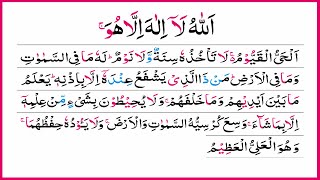 اَللّٰهُ لَآ اِلٰهَ اِلَّا هُوَۚ
اَلْحَیُّ الْقَیُّوْمُ ۚ۬ لَا تَاْخُذُهٗ سِنَةٌ وَّلَا نَوْمٌ ؕ لَهٗ مَا فِی السَّمٰوٰتِ
وَمَا فِی الْاَرْضِ ؕ مَنْ ذَا الَّذِیْ یَشْفَعُ عِنْدَهٗۤ اِلَّا بِاِذْنِهٖ ؕ یَعْلَمُ
مَا بَیْنَ اَیْدِیْهِمْ وَمَا خَلْفَهُمْ ۚ وَلَا یُحِیْطُوْنَ بِشَیْءٍ مِّنْ عِلْمِهٖۤ
اِلَّا بِمَا شَآءَ ۚ وَسِعَ كُرْسِیُّهُ السَّمٰوٰتِ وَالْاَرْضَ ۚ وَلَا یَـُٔوْدُهٗ حِفْظُهُمَا ۚ
وَهُوَ الْعَلِیُّ الْعَظِیْمُ